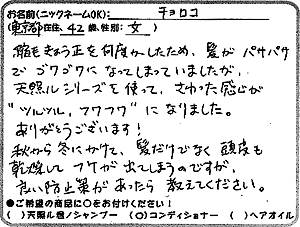 お名前(ニックネームOK): チョロコ
(東京都在住、42 歳、性別: 女 )
縮毛きょう正を何度かしたため、髪がパサパサ
でゴワゴワになってしまっていましたが、
天照ルシリーズを使って、さわった感じが
"ツルツル、フワフワ"になりました。
ありがとうございます!
秋から冬にかけて、髪だけでなく頭皮も
乾燥してフケが出てしまうのですが、
良い防止策があったら教えてください。
●ご希望の商品に○をお付けください!
( )天照ル君ノシャンプー (○)コンディショナー ( )ヘアオイル